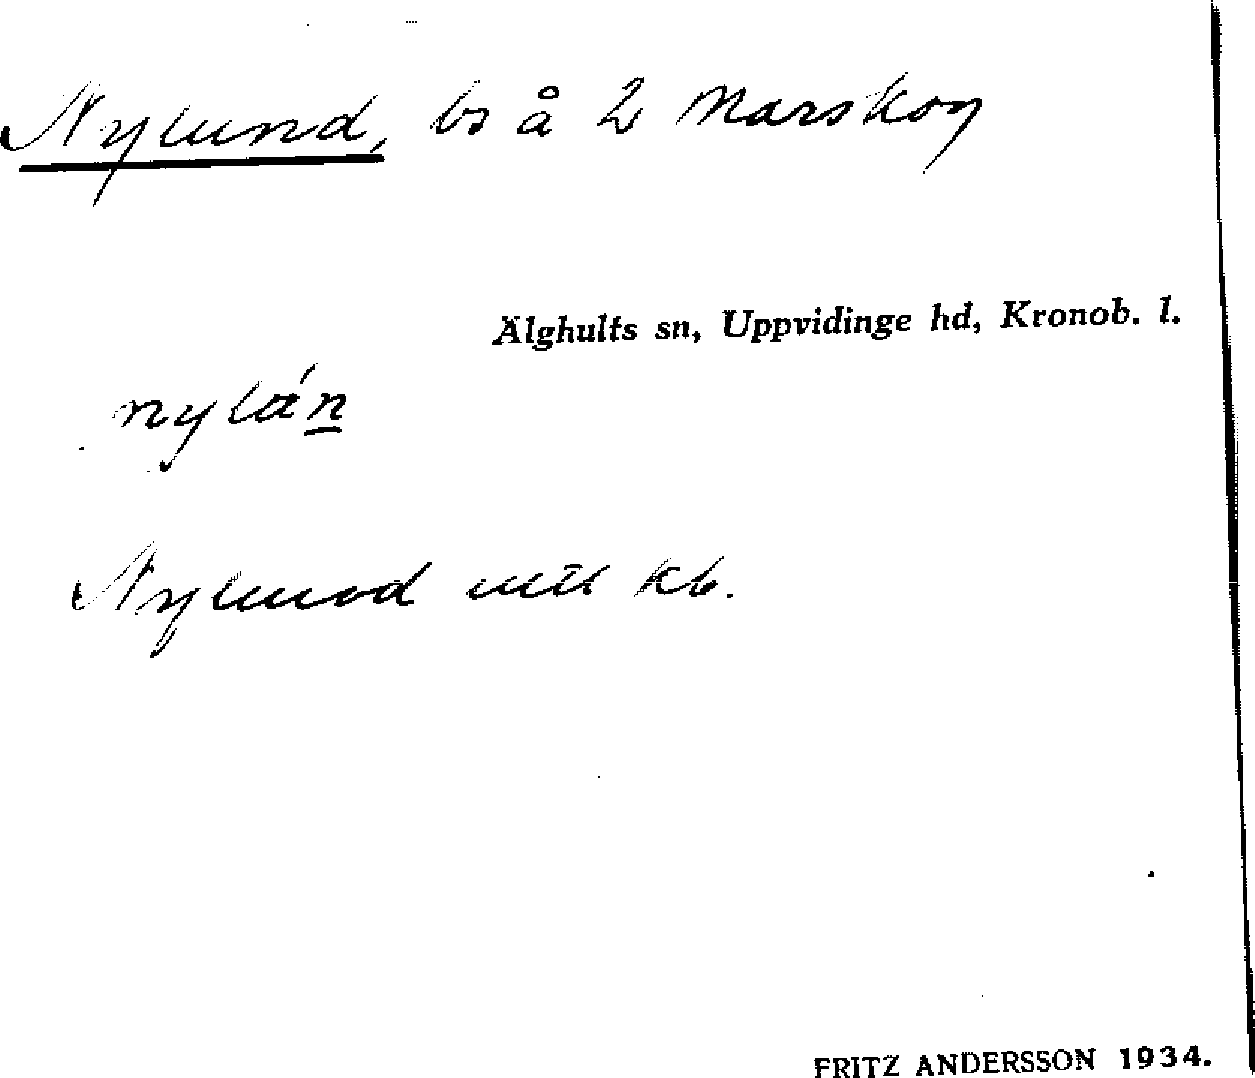 Nylund, bs å 2 Marskog
Älghults sn, Uppvidinge hd, Kronob. l.
nylán
Nylund kb.
FRITZ ANDERSSON 1934.